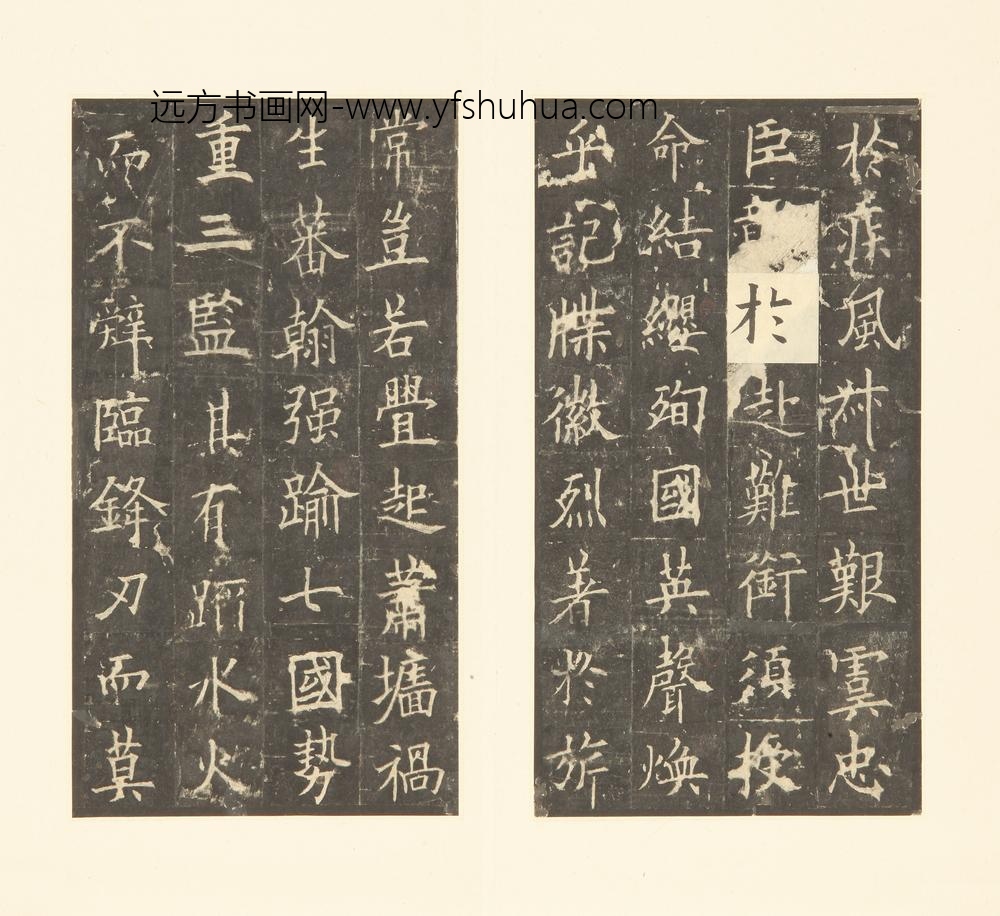 远方书画网-www.yfshuhua.com
於疾風叔世艱虞忠
臣於赴難銜須授
命結纓殉國英聲煥
乎記牒徽烈著於旂
常豈若舋起蕭墻禍
生蕃翰强踰七國勢
重三監其有蹈水火
而不辭臨鋒刃而莫